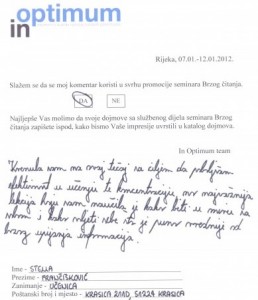 optimum
in
Rijeka, 07.01.-12.01.2012.
Slažem se da se moj komentar koristi u svrhu promocije seminara Brzog čitanja.
DA NE
Najljepše Vas molimo da svoje dojmove sa službenog dijela seminara Brzog
čitanja zapišete ispod, kako bismo Vaše impresije uvrstili u katalog dojmova.
In Optimum team
Krenula sam na ovaj tečaj sa ciljem da poboljšam
efektivnost u učenju te koncentraciju, no najvažnija
lekcija koju sam naučila je kako biti u miru sa
sobom i kako
brzog upijanja informacija.
Ime - STELLA
Prezime - FRANČIŠKOVIĆ
Zanimanje - UČENICA
Poštanski broj i mjesto - KRASICA 211D, 51224 KRASICA